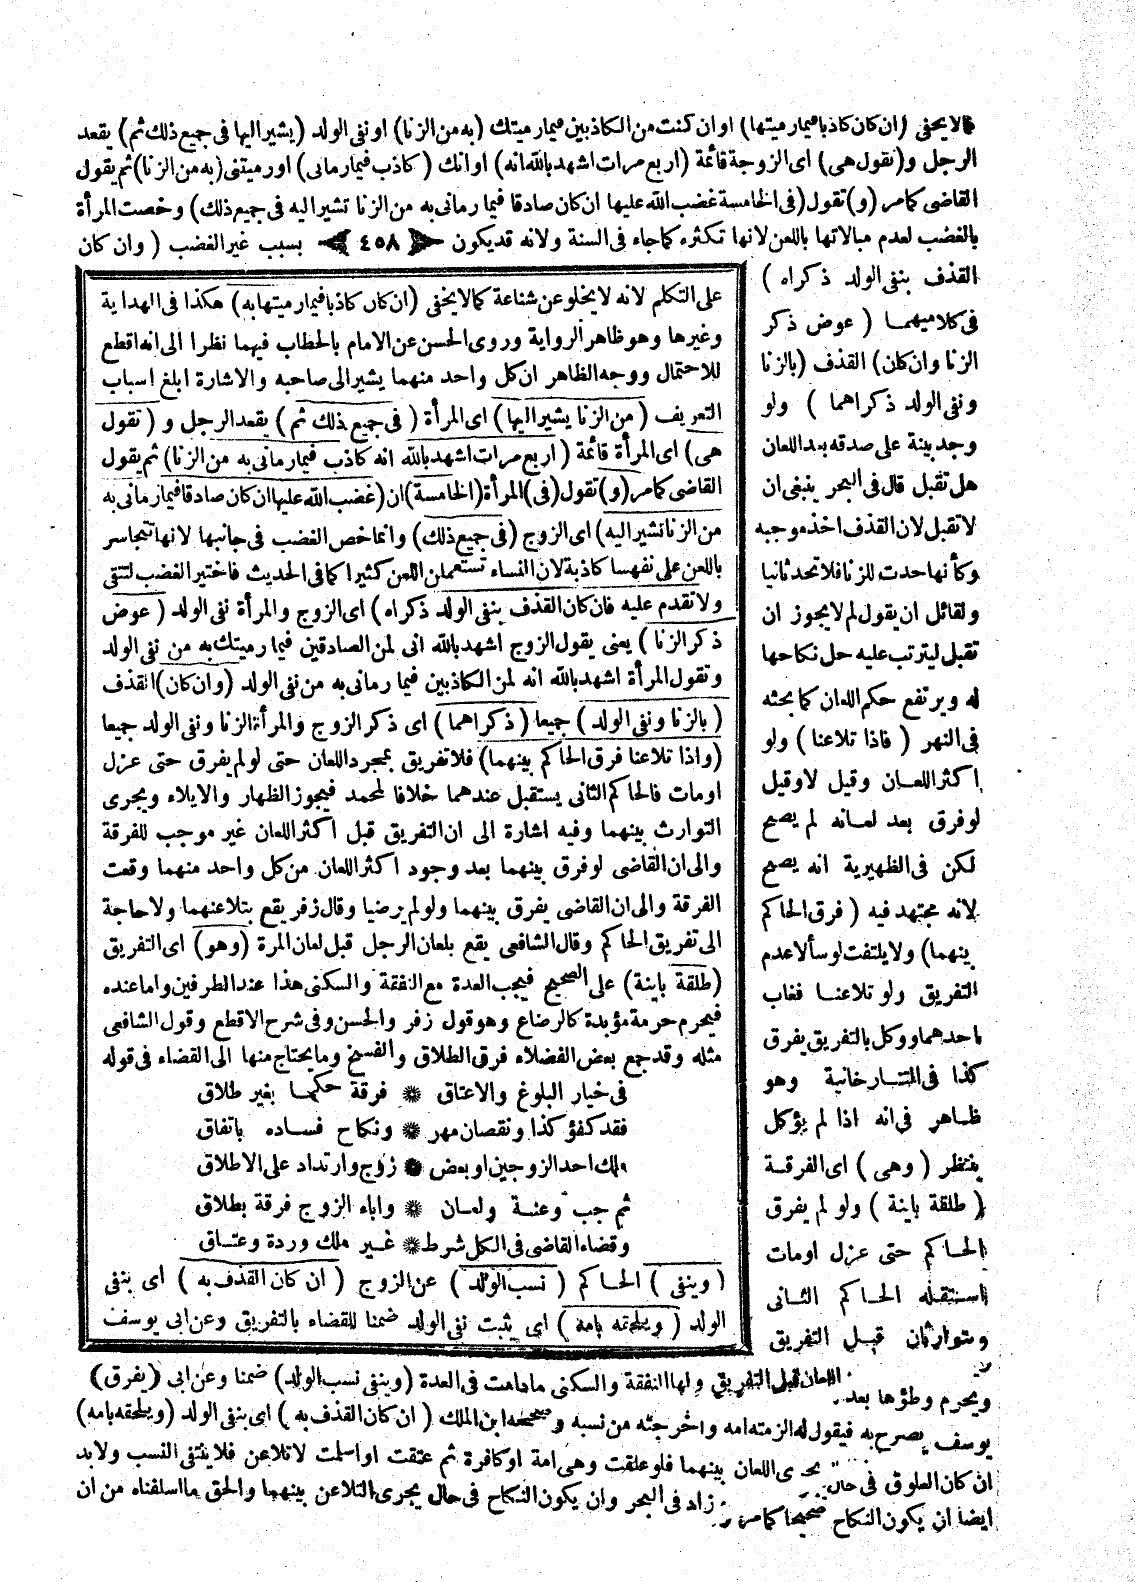 كما لا يخفى (ان كان كاذبا فيما رميتها) او ان كنت من الكاذبين فيما رميتك (به من الزنا) او نفى الولد (يشير اليها فى جميع ذلك ثم) يقعد
الرجل و (تقول هى) اى الزوجة قائمة (اربع مرات اشهد بالله انه) او انك (كاذب فيما رمانى) او رميتنى (به من الزنا) ثم يقول
القاضى كما مر (و) تقول (فى الخامسة غضب الله عليها ان كان صادقا فيما رمانى به من الزنا تشير اليه فى جميع ذلك) وخصت المرأة
بالغضب لعدم مبالاتها باللعن لانها تكثره كما جاء فى السنة ولانه قد يكون ﴿ ٤٥٨ ﴾ بسبب غير الغضب (وان كان
القذف بنفى الولد ذكراه)
فى كلاميهما (عوض ذكر
الزنا وان كان) القذف (بالزنا
ونفى الولد ذكراهما) ولو
وجد بينة على صدقه بعد اللعان
هل تقبل قال فى البحر ينبغى ان
لا تقبل لان القذف اخذ موجبه
وكأنها حدت للزنا فلا تحد ثانيا
ولقائل ان يقول لم لا يجوز ان
تقبل ليترتب عليه حل نكاحها
له ويرتفع حكم اللعان كما بحثه
فى النهر (فاذا تلاعنا) ولو
اكثر اللعان وقيل لا وقيل
لو فرق بعد لعانه لم يصح
لكن فى الظهيرية انه يصح
لانه مجتهد فيه (فرق الحاكم
بينهما) ولا يلتفت لو سألا عدم
التفريق ولو تلاعنا فغاب
احدهما ووكل بالتفريق يفرق
كذا فى التتارخانية وهو
ظاهر فى انه اذا لم يؤكل
ينتظر (وهى) اى الفرقة
(طلقة باينة) ولو لم يفرق
الحاكم حتى عزل او مات
استقبله الحاكم الثانى
ويتوارثان قبل التفريق
على التكلم لانه لا يخلو عن شناعة كما لا يخفى (ان كان كاذبا فيما رميتها به) هكذا فى الهداية
وغيرها وهو ظاهر الرواية وروى الحسن عن الامام بالخطاب فيهما نظرا الى انه اقطع
للاحتمال ووجه الظاهر ان كل واحد منهما يشير الى صاحبه والاشارة ابلغ اسباب
التعريف (من الزنا يشير اليها) اى المرأة (فى جميع ذلك ثم) يقعد الرجل و (تقول
هى) اى المرأة قائمة (اربع مرات اشهد بالله انه كاذب فيما رمانى به من الزنا) ثم يقول
القاضى كما مر (و) تقول (فى) المرأة (الخامسة) ان (غضب الله عليها ان كان صادقا فيما رمانى به
من الزنا تشير اليه) اى الزوج (فى جميع ذلك) وانما خص الغضب فى جانبها لانها تتجاسر
باللعن على نفسها كاذبة لان النساء تستعملن اللعن كثيرا كما فى الحديث فاختير الغضب لتتقى
ولا تقدم عليه فان كان القذف بنفى الولد ذكراه) اى الزوج والمرأة نفى الولد (عوض
ذكر الزنا) يعنى يقول الزوج اشهد بالله انى لمن الصادقين فيما رميتك به من نفى الولد
وتقول المرأة اشهد بالله انه لمن الكاذبين فيما رمانى به من نفى الولد (وان كان) القذف
(بالزنا ونفى الولد) جميعا (ذكراهما) اى ذكر الزوج والمرأة الزنا ونفى الولد جميعا
(واذا تلاعنا فرق الحاكم بينهما) فلا تفريق بمجرد اللعان حتى لو لم يفرق حتى عزل
او مات فالحاكم الثانى يستقبل عندهما خلافا لمحمد فيجوز الظهار والايلاء ويجرى
التوارث بينهما وفيه اشارة الى ان التفريق قبل اكثر اللعان غير موجب للفرقة
والى ان القاضى لو فرق بينهما بعد وجود اكثر اللعان من كل واحد منهما وقعت
الفرقة والى ان القاضى يفرق بينهما ولو لم يرضيا وقال زفر يقع بتلاعنهما ولا حاجة
الى تفريق الحاكم وقال الشافعى يقع بلعان الرجل قبل لعان المرة (وهو) اى التفريق
(طلقة باينة) على الصحيح فيجب العدة مع النفقة والسكنى هذا عند الطرفين واما عنده
فيحرم حرمة مؤبدة كالرضاع وهو قول زفر والحسن وفى شرح الاقطع وقول الشافعى
مثله وقد جمع بعض الفضلاء فرق الطلاق والفسخ وما يحتاج منها الى القضاء فى قوله
فى خيار البلوغ والاعتاق ❋ فرقة حكمها بغير طلاق
فقد كفؤ كذا ونقصان مهر ❋ ونكاح فساده باتفاق
ملك احد الزوجين او بعض ❋ زوج وارتداد على الاطلاق
ثم جب وعنة ولعان ❋ واباء الزوج فرقة بطلاق
وقضاء القاضى فى الكل شرط ❋ غير ملك وردة وعتاق
(وينفى) الحاكم (نسب الولد) عن الزوج (ان كان القذف به) اى بنفى
الولد (ويلحقه بامه) اى يثبت نفى الولد ضمنا للقضاء بالتفريق وعن ابى يوسف
ويحرم وطؤها بعد اللعان قبل التفريق ولها النفقة والسكنى مادامت فى العدة (وينفى نسب الولد) ضمنا وعن ابى (يفرق)
يوسف يصرح به فيقول له الزمته امه واخرجته من نسبه وصححه ابن الملك (ان كان القذف به) اى بنفى الولد (ويلحقه بامه)
ان كان العلوق فى حال يجرى اللعان بينهما فلو علقت وهى امة او كافرة ثم عتقت او اسلمت لا تلاعن فلا ينتفى النسب ولا بد
ايضا ان يكون النكاح صحيحا كما مر زاد فى البحر وان يكون النكاح فى حال يجرى التلاعن بينهما والحق ما اسلفناه من ان